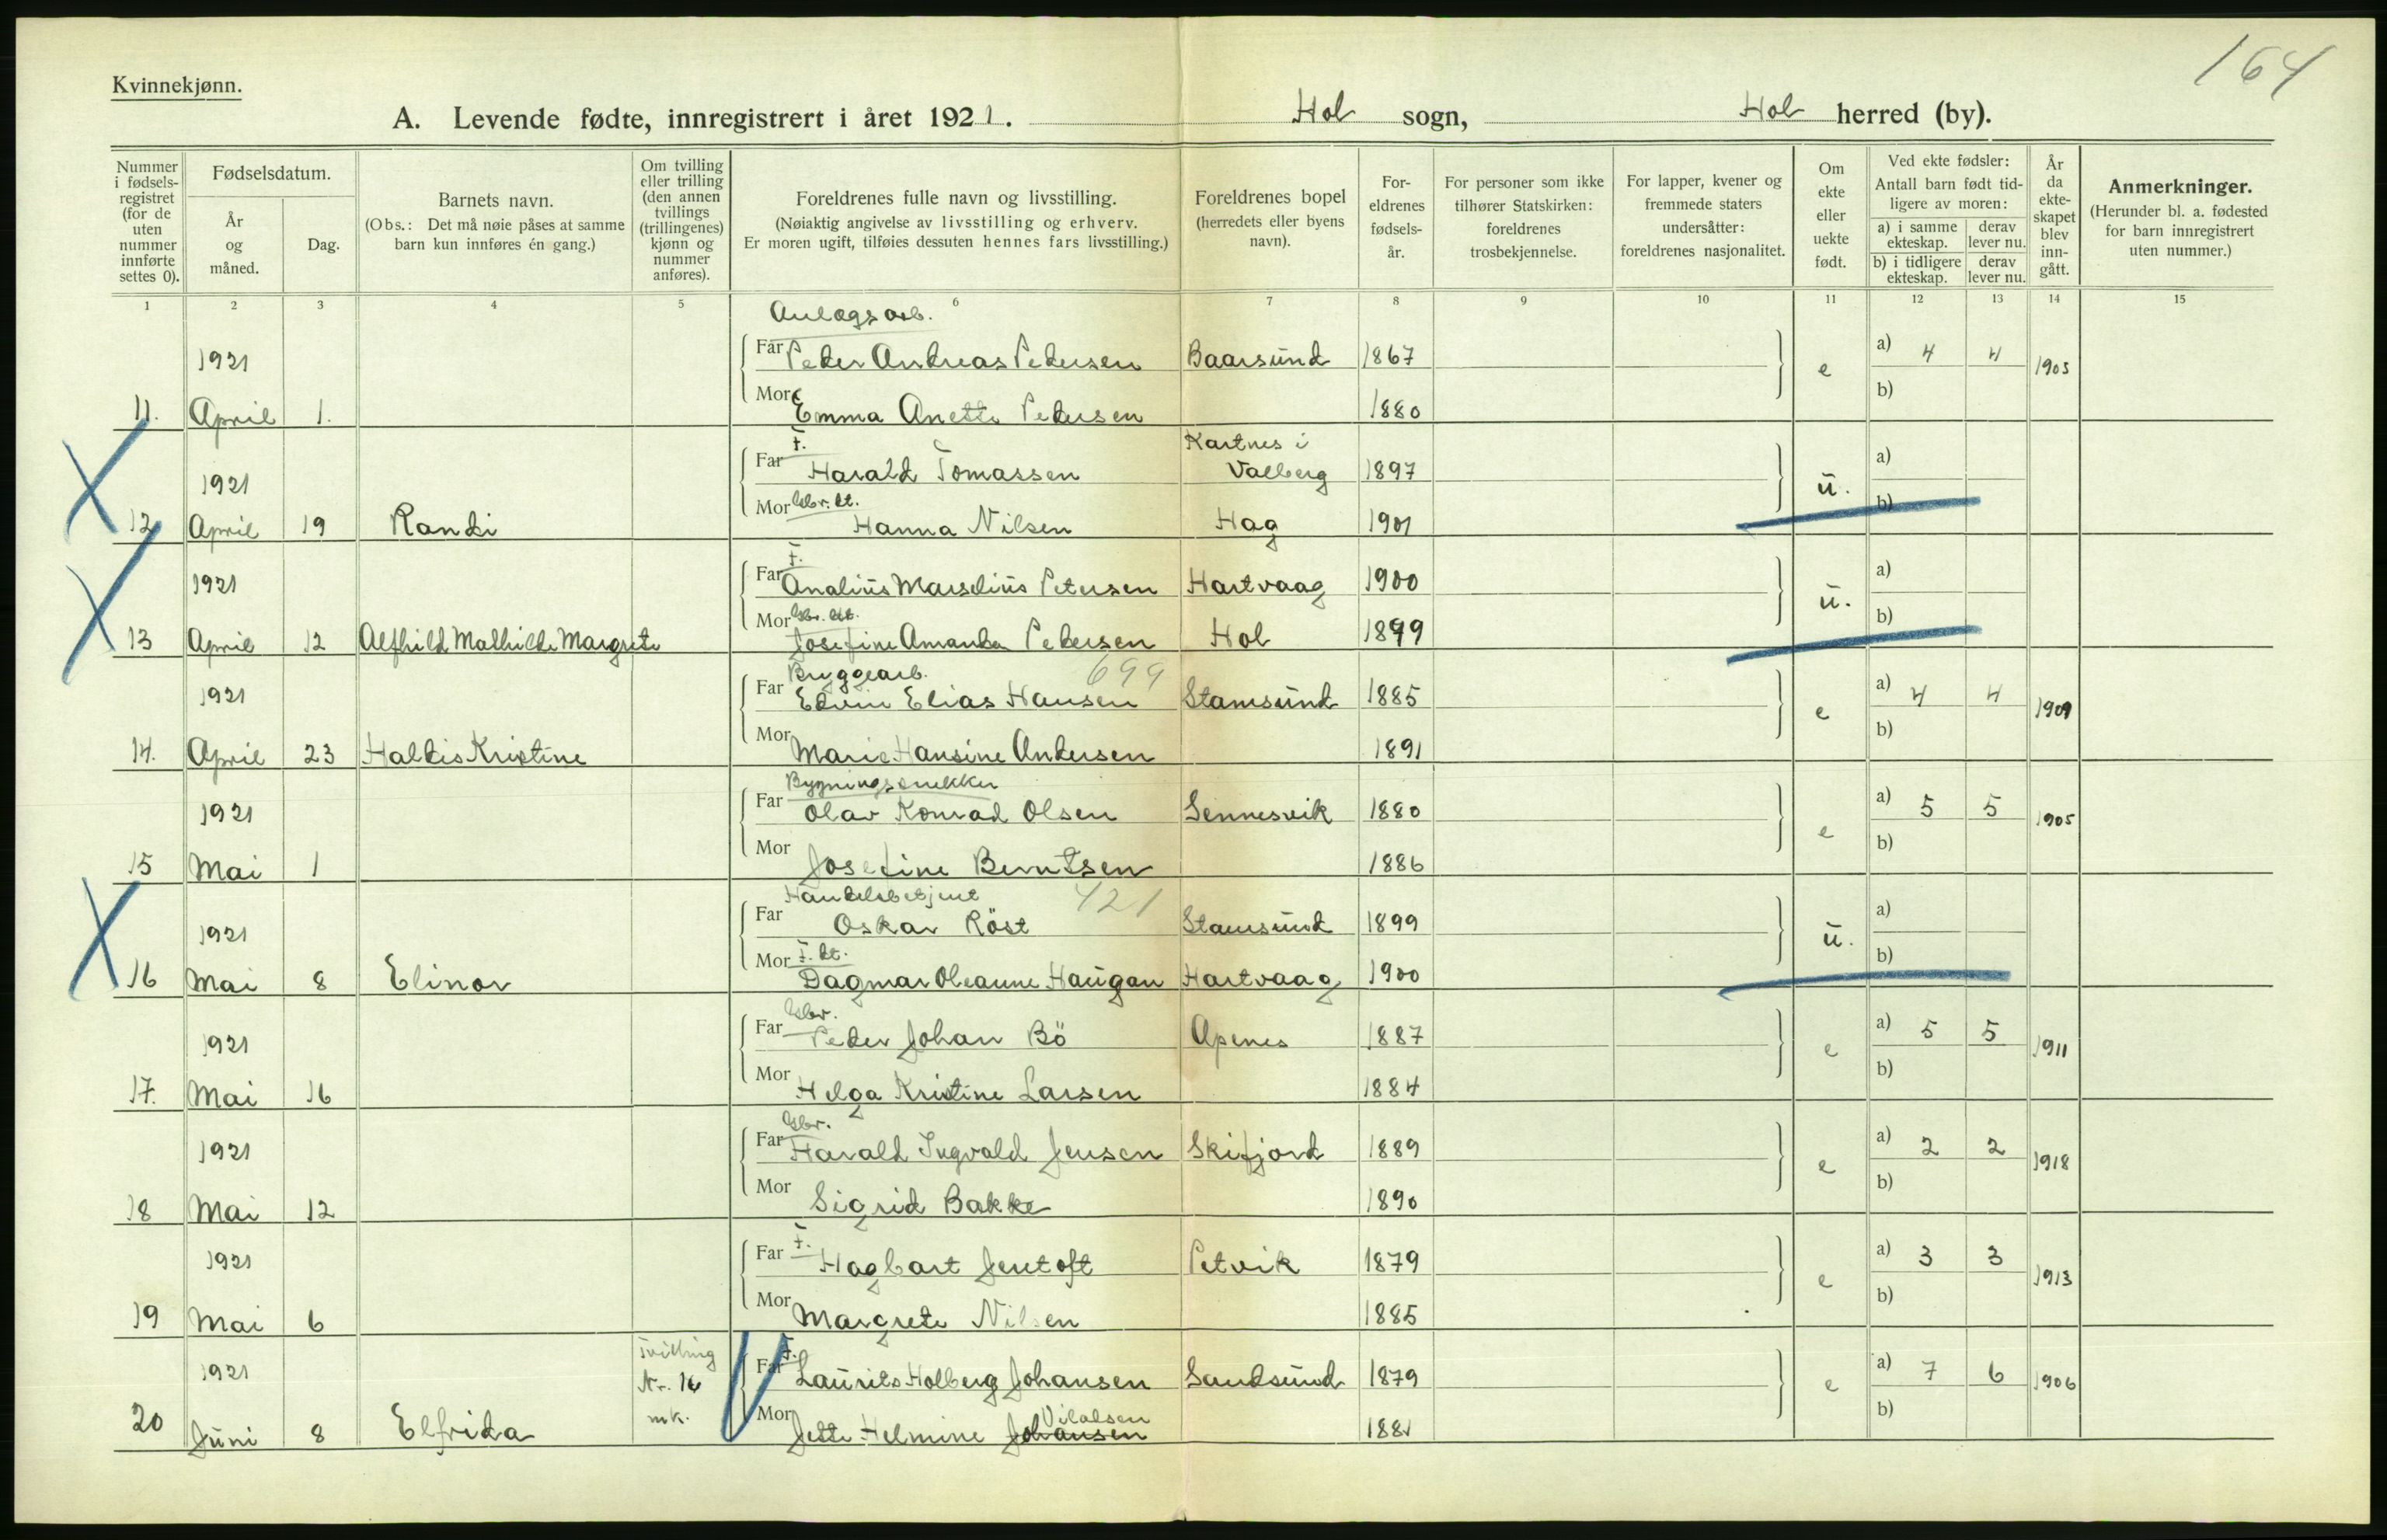 164
Kvinnekjønn.
A. Levende fødte, innregistrert i året 1921. Hol sogn, Hol herred (by).
Nummer i fødsels-registret (for de uten nummer innførte settes 0).
Fødselsdatum.
År og måned.
Dag.
Barnets navn.
(Obs.: Det må nøie påses at samme barn kun innføres én gang.)
Om tvilling eller trilling (den annen tvillings (trillingenes) kjønn og nummer anføres).
Foreldrenes fulle navn og livsstilling.
(Nøiaktig angivelse av livsstilling og erhverv.
Er moren ugift, tilføies dessuten hennes fars livsstilling.)
Foreldrenes bopel (herredets eller byens navn).
For-eldrenes fødsels-år.
For personer som ikke tilhører Statskirken: foreldrenes trosbekjennelse.
For lapper, kvener og fremmede staters undersåtter: foreldrenes nasjonalitet.
Om ekte eller uekte født.
Ved ekte fødsler: Antall barn født tid-ligere av moren:
a) i samme ekteskap. derav lever nu.
b) i tidligere ekteskap. derav lever nu.
År da ekte-skapet blev inn-gått.
Anmerkninger.
(Herunder bl. a. fødested for barn innregistrert uten nummer.)
1 2 3 4 5 6 7 8 9 10 11 12 13 14 15
Anlægsarb.
1921 Far Peder Andreas Pedersen Baarsund 1867 e a) 4 4 1905
b)
11. April 1. Mor Emma Anette Pedersen 1880
F. Kartnes i
1921 Far Harald Tomassen Valberg 1897 u. a)
Gbr. dt. b)
12 April 19 Randi Mor Hanna Nilsen Hag 1901
F.
1921 Far Analius Marselius Petersen Hartvaag 1900 u. a)
Gbr. dt. b)
13 April 12 Alfhild Mathilde Margrete Mor Josefine Amanda Pedersen Hol 1899
Bryggearb. 699
1921 Far Edvin Elias Hansen Stamsund 1885 e a) 4 4 1909
b)
14. April 23 Haldis Kristine Mor Marie Hansine Andersen 1891
Bygningssnekker
1921 Far Olav Konrad Olsen Sennesvik 1880 e a) 5 5 1905
b)
15 Mai 1 Mor Josefine Berntsen 1886
Handelsbetjent 421
1921 Far Oskar Röst Stamsund 1899 u. a)
F. dt. b)
16 Mai 8 Elinor Mor Dagmar Oleanne Haugan Hartvaag 1900
Gbr.
1921 Far Peder Johan Bö Apenes 1887 e a) 5 5 1911
b)
17. Mai 16 Mor Helga Kristine Larsen 1884
Gbr.
1921 Far Harald Ingvald Jensen Skifjord 1889 e a) 2 2 1918
b)
18 Mai 12 Mor Sigrid Bakke 1890
F.
1921 Far Hagbart Jentoft Petvik 1879 e a) 3 3 1913
b)
19 Mai 6 Mor Margrete Nilsen 1885
Tvilling F.
1921 Nr. 16 Far Laurits Holberg Johansen Sandsund 1879 e a) 7 6 1906
mk. b)
20 Juni 8 Elfrida Mor Jette Helmine Johansen 1881